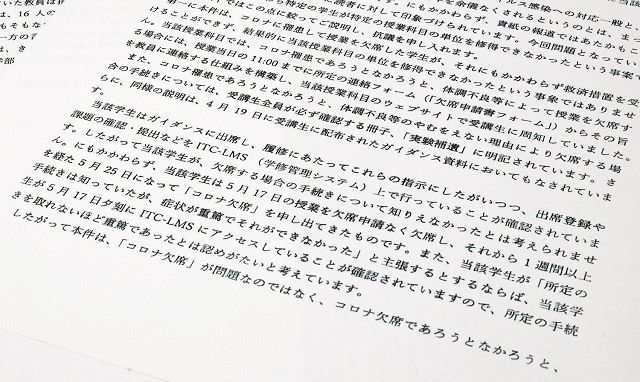 ルス感染への対応一般と
を余儀なくされるというのは、ま
にもかかわらず、貴紙の報道ではあたかもこ
読者に対して印象づけられています。今回問題となってい
特定の学生が特定の授業科目の単位を修得できなかったという事案
ではこの点に絞ってご説明し、抗議を申し入れます
第一に本件は、コロナに罹患して授業を欠席した学生が、それにもかかわらず救済措置を受
けることができず、結果的に当該授業科目の単位を修得できなかったという事象ではありませ
ん。当該授業科目では、コロナ罹患であろうとなかろうと、体調不良等によって授業を欠席す
る場合には、授業当日の 11:00 までに所定の連絡フォーム（「欠席申請書フォーム」）からその旨
を教員に連絡する仕組みを構築し、当該授業科目のウェブサイトで受講生に周知していました。
また、コロナ罹患であろうとなかろうと、体調不良等のやむをえない理由により欠席する場
合の手続きについては、受講生全員が必ず確認する冊子、「実験補遺」に明記されています。さ
らに、同様の説明は、4 月 19 日に受講生に配布されたガイダンス資料においてもなされていま
す。
当該学生はガイダンスに出席し、履修にあたってこれらの指示にしたがいつつ、出席登録や
課題の確認・提出などを ITC-LMS（学修管理システム）上で行っていることが確認されていま
す。したがって当該学生が、欠席する場合の手続きについて知りえなかったとは考えられませ
ん。にもかかわらず、当該学生は 5 月 17 日の授業を欠席申請なく欠席し、それから 1 週間以上
を経た 5 月 25 日になって「コロナ欠席」を申し出てきたものです。また、当該学生が「所定の
手続きは知っていたが、症状が重篤でそれができなかった」と主張するとするならば、当該学
生が 5 月 17 日夕刻に ITC-LMS にアクセスしていることが確認されていますので、所定の手続
きを取れないほど重篤であったとは認めがたいと考えています。
したがって本件は、「コロナ欠席」が問題なのではなく、コロナ欠席であろうとなかろうと、